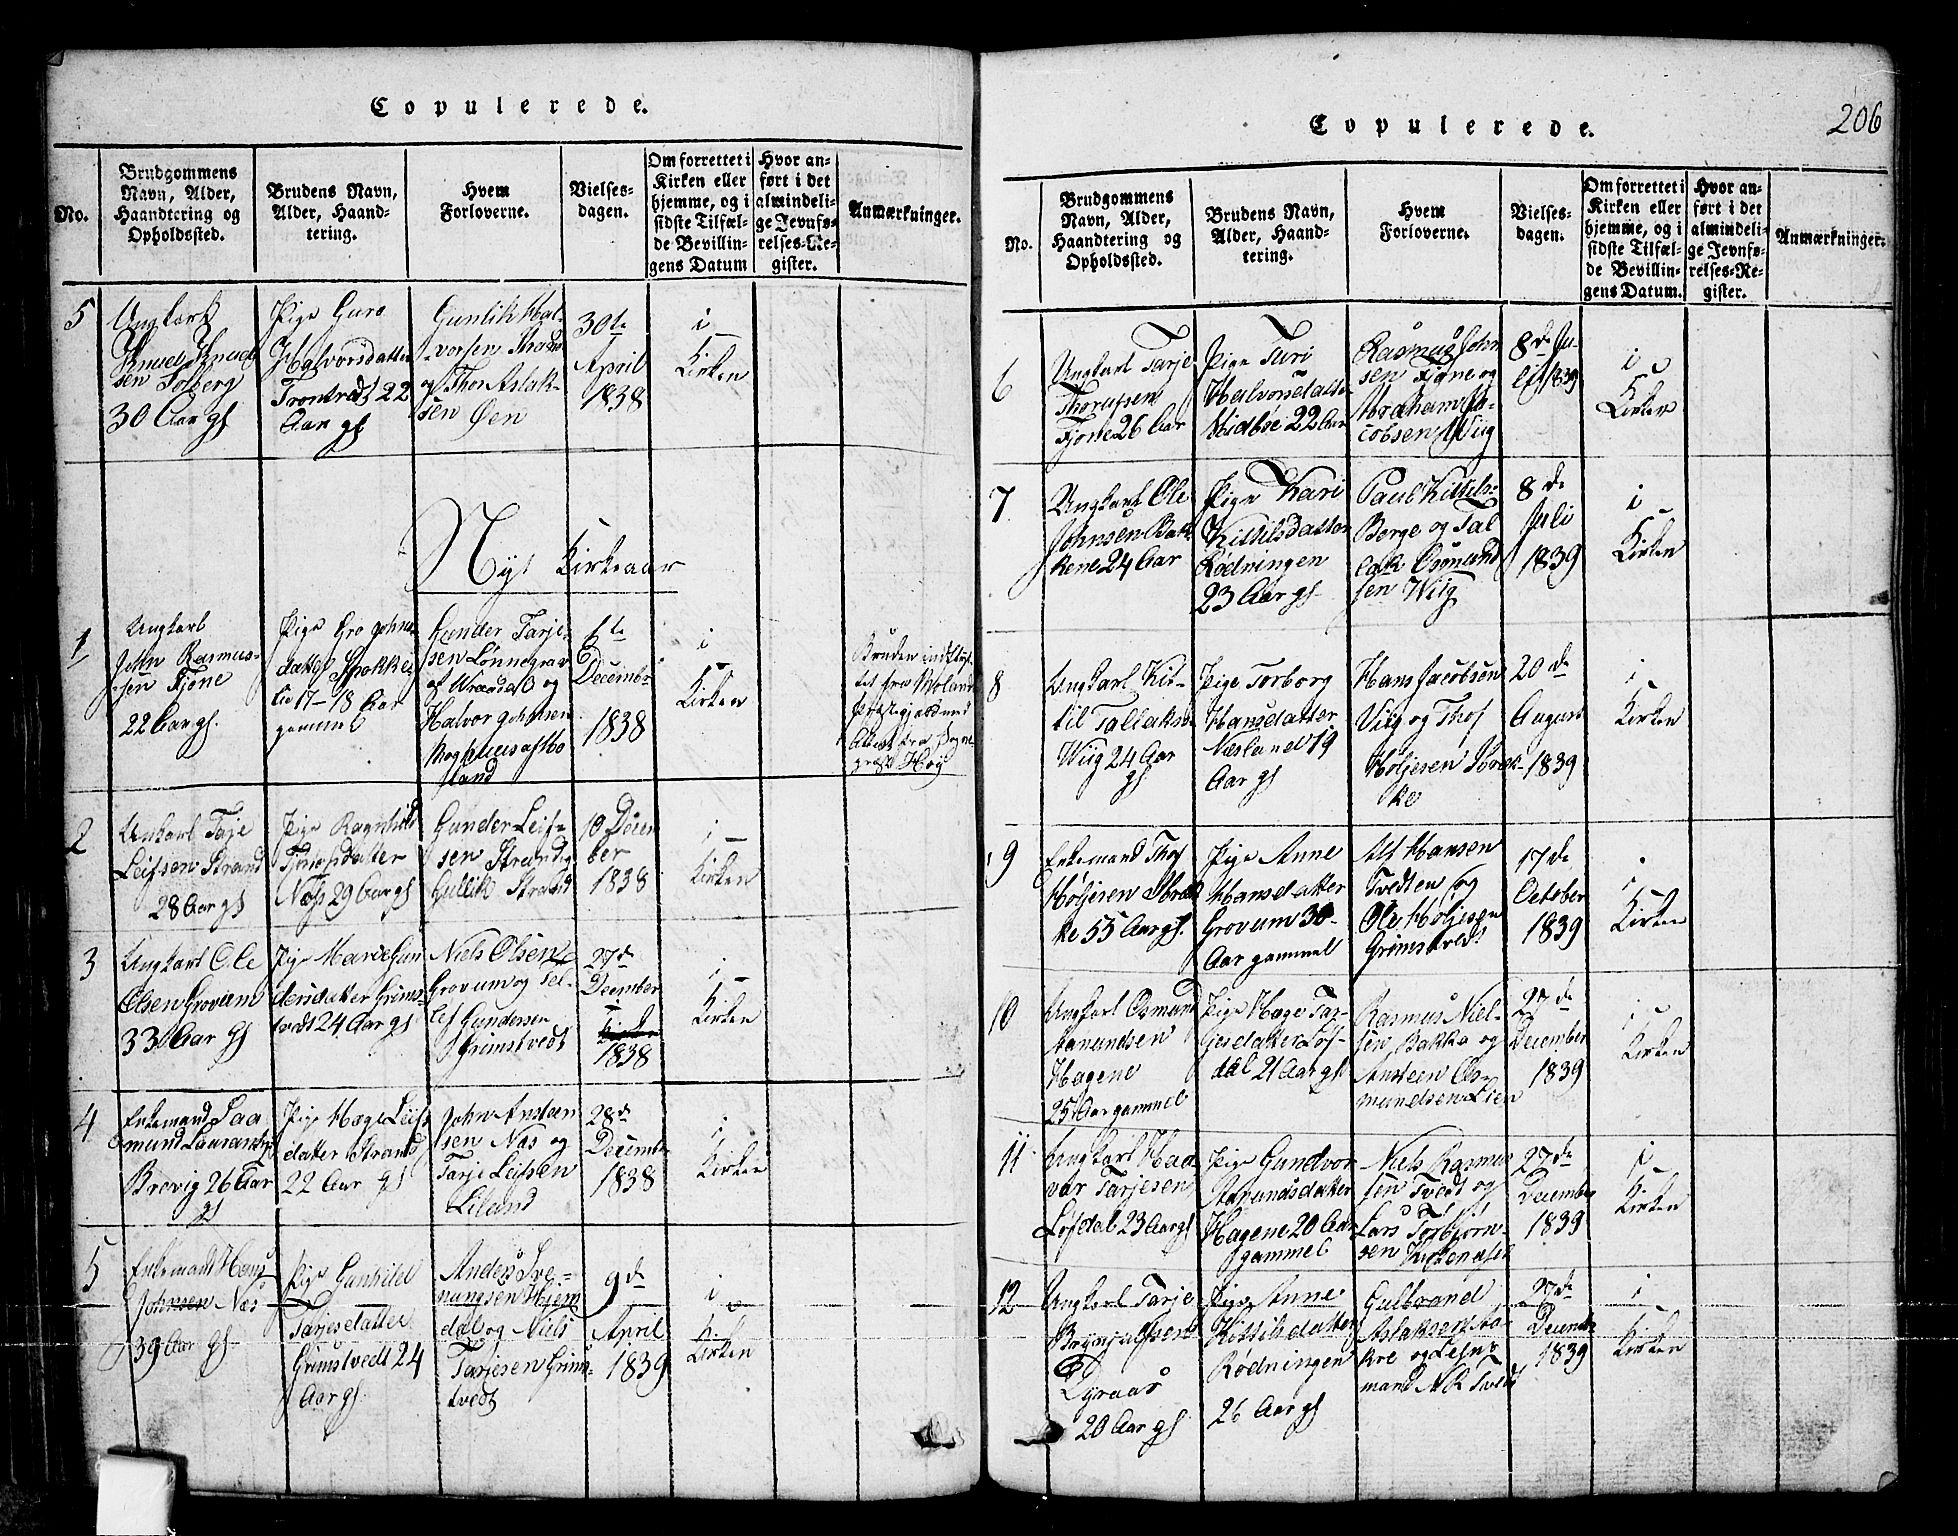 Copulerede.
No.
Brudgommens
Navn, Alder,
Haandtering og
Opholdssted.
Brudens Navn,
Alder, Haand-
tering.
Hvem
Forloverne.
Vielses-
dagen.
Om forrettet i
Kirken eller
hjemme, og i
sidste Tilfæl-
de Bevillin-
gens Datum
Hvor an-
ført i det
almindeli-
ge Jevnfø-
relses-Re-
gister.
Anmærkninger.
5
Ungkarl
Knud Knud-
sen Solberg
30 Aar gl
Pige Guro
Halvorsdatter
Trontvedt 22
Aar gl
Gunlik Hal-
vorsen
og Thor Aslak-
sen Øen
30te
April
1838
i
Kirken
Nyt Kirkeaar
1
Ungkarl
John Rasmus-
sen Fjone
22 Aar gl.
Pige Gro Johns-
datter
17-18 Aar
gammel
Gunder Tarje-
sen Lønnegrav
af Wraadal og
Halvor Johnsen
6te
Decembr
1838
i
Kirken
Bruden indflyt-
tet fra Moland
Præstegjeld med
Attest fra Sogne-
præst Høy
2
Unkarl Taje
Leifsen Strand
28 Aar gl
Pige Ragnhild
Næs 29 Aar gl
Gunder Leif-
sen Strand og
Gullik Strand
10 Decem
ber
1838
i
Kirken
3
Ungkarl Ole
Olsen Grovum
33 Aar gl
Pige Marie Gun
dersdatter Grims-
tvedt 24 Aar gl
Niels Olsen
Grovum og Lel-
lef Gundersen
Grimstvedt
27de
December
1838
i
Kirken
4
Enkemand Saa
mund Laurants
Brevig 26 Aar
gl
Pige Hæge Leifs
datter Strand
22 Aar gl
John Ansteen
sen Næs og
Tarje Leifsen
Liland
28de
Decembr
1838
i
Kirken
5
Enkemand Hans
Johnsen Næs
39 Aar gl.
Pige Gunhild
Tarjesdatter
Grimstvedt 24
Aar gl.
Anders Sve-
nungsen Hjem
dal og Niels
Tarjesen Grims-
tvedt
9de
April
1839
i
Kirken
206
Copulerede.
No.
Brudgommens
Navn, Alder,
Haandtering og
Opholdssted.
Brudens Navn,
Alder, Haand-
tering.
Hvem
Forloverne.
Vielses-
dagen.
Om forrettet i
Kirken eller
hjemme, og i
sidste Tilfæl-
de Bevillin-
gens Datum.
Hvor an-
ført i det
almindeli-
ge Jevnfø-
relses-Re-
gister.
Anmærkninger.
6
Ungkarl Tarje
Fjone 26 Aar
Pige Turi
Halvorsdatter
Midbøe 22 Aar
Rasmus John
sen Fjone og
Abraham Ja-
cobsen Wiig
8de Ju-
li 1839
i
Kirken
7
Ungkarl Ole
Johnsen Bak
kene 24 Aar
Pige Kari
Kittilsdatter
Rødningen
23 Aar gl
Paul Kittils-
Berge og Tal
lak Osmund
sen Wiig
8de
Juli
1839
i
Kirken
8
Ungkarl Kit-
til Tallaks.
Wiig 24 Aar
gl
Pige Torborg
Hansdatter
Næsland 19
Aar gl
Hans Jacobsen
Viig og Thof
Høljesen Bræk-
ke
20de
August
1839
i
Kirken
9
Enkemand Thof
Høljesen Bræk
ke 55 Aar gl.
Pige Anne
Hansdatter
Grovum 30-
Aar gammel
Alf Hansen
Tvedten og
Ole Høljesen
Grimstvedt
17de
October
1839
i
Kirken
10
Ungkarl Osmund
Aamundsen
Hagene
25 Aar gammel
Pige Hæge Tar-
jesdatter Løf-
dal 21 Aar gl
Rasmus Niel-
sen Bakka og
Ansteen Os-
mundsen Lien
27de
December
1839
i
Kirken
11
Ungkarl Haa
var Tarjesen
Løfdal 23 Aar gl
Pige Gundvor
Amundsdatter
Hagene 20 Aar
gammel
Niels Rasmus
sen Tvedt og
Lars Torbjørn-
sen
27de
Decembr
1839
i
Kirken
12
Ungkarl Tarje
Brynjulfsen
Dyraas
20 Aar gl
Pige Anne
Kittilsdatter
Rødningen
26 Aar gl
Gulbrand
Aslaksen Aa-
kre og Lehns-
mand N R Tvedt
27de
Decembr
1839
i
Kirken